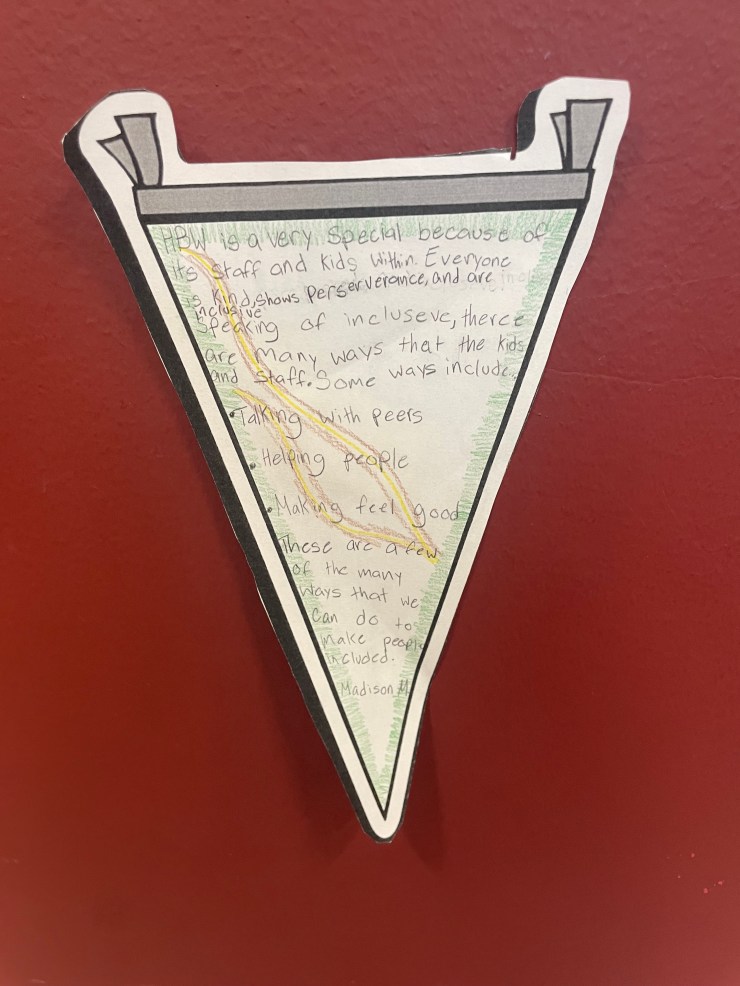 HBW is a very special because of
its staff and kids within. Everyone
is kind, shows perserverance, and are
inclusive
Speaking of incluseve, therce
are many ways that the kids
and staff. Some ways include..
•Talking with peers
•Helping people
•Making feel good
These are a few
of the many
ways that we
can do to
make people
included.
Madison